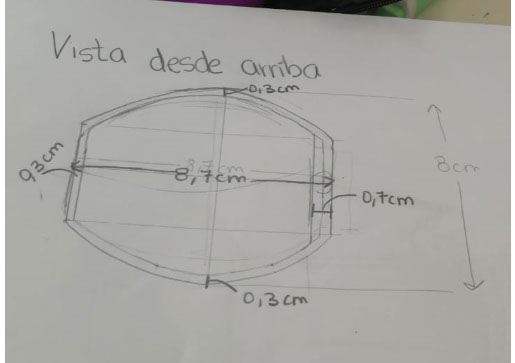 Vista desde arriba
0,3cm
0,3cm
8,7cm
8cm
0,7cm
0,3cm